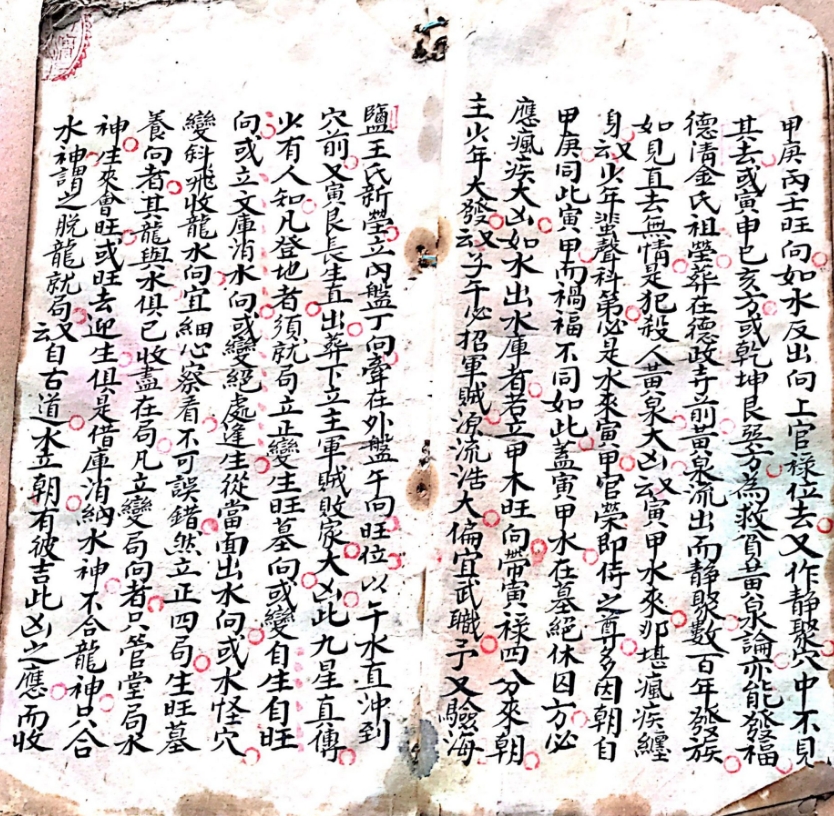 甲庚丙壬旺向如水反出向上官禄位去又作靜聚穴中不見
其去或寅申巳亥方或乾坤艮巽方為救貧黃泉論亦能發福
德清金氏祖塋葬在德政寺前黃泉流出而靜聚數百年發族
如見直去無情是犯殺人黃泉大凶又云寅甲水來那堪瘋疾纏
身又云少年蜚聲科第必是水來寅甲官榮即侍之尊多因朝自
甲庚同此寅甲而禍福不同如此蓋寅甲水在墓絕休囚方必
應瘋疾大凶如水出水庫者若立甲木旺向帶寅祿四八分來朝
主少年大發又云子午必招軍賊源流浩大偏宜武職予又驗海
鹽王氏新塋立內盤丁向牽在外盤午向旺位以午水直沖到
穴前又寅艮長生直出葬下立主軍賊敗家大凶此九星真傳
少有人知凡登地者須就局立正變生旺墓向或變自生自旺
向或立文庫消水向或變絕處逢生從當面出水向或水怪穴
變斜飛收龍水向宜細心察看不可誤錯然立正四局生旺墓
養向者其龍與水俱已收盡在局凡立變局向者只管堂局水
神生來會旺或旺去迎生俱是借庫消納水神不合龍神只合
水神謂之脫龍就局又云自古道水立朝有彼吉此凶之應而收